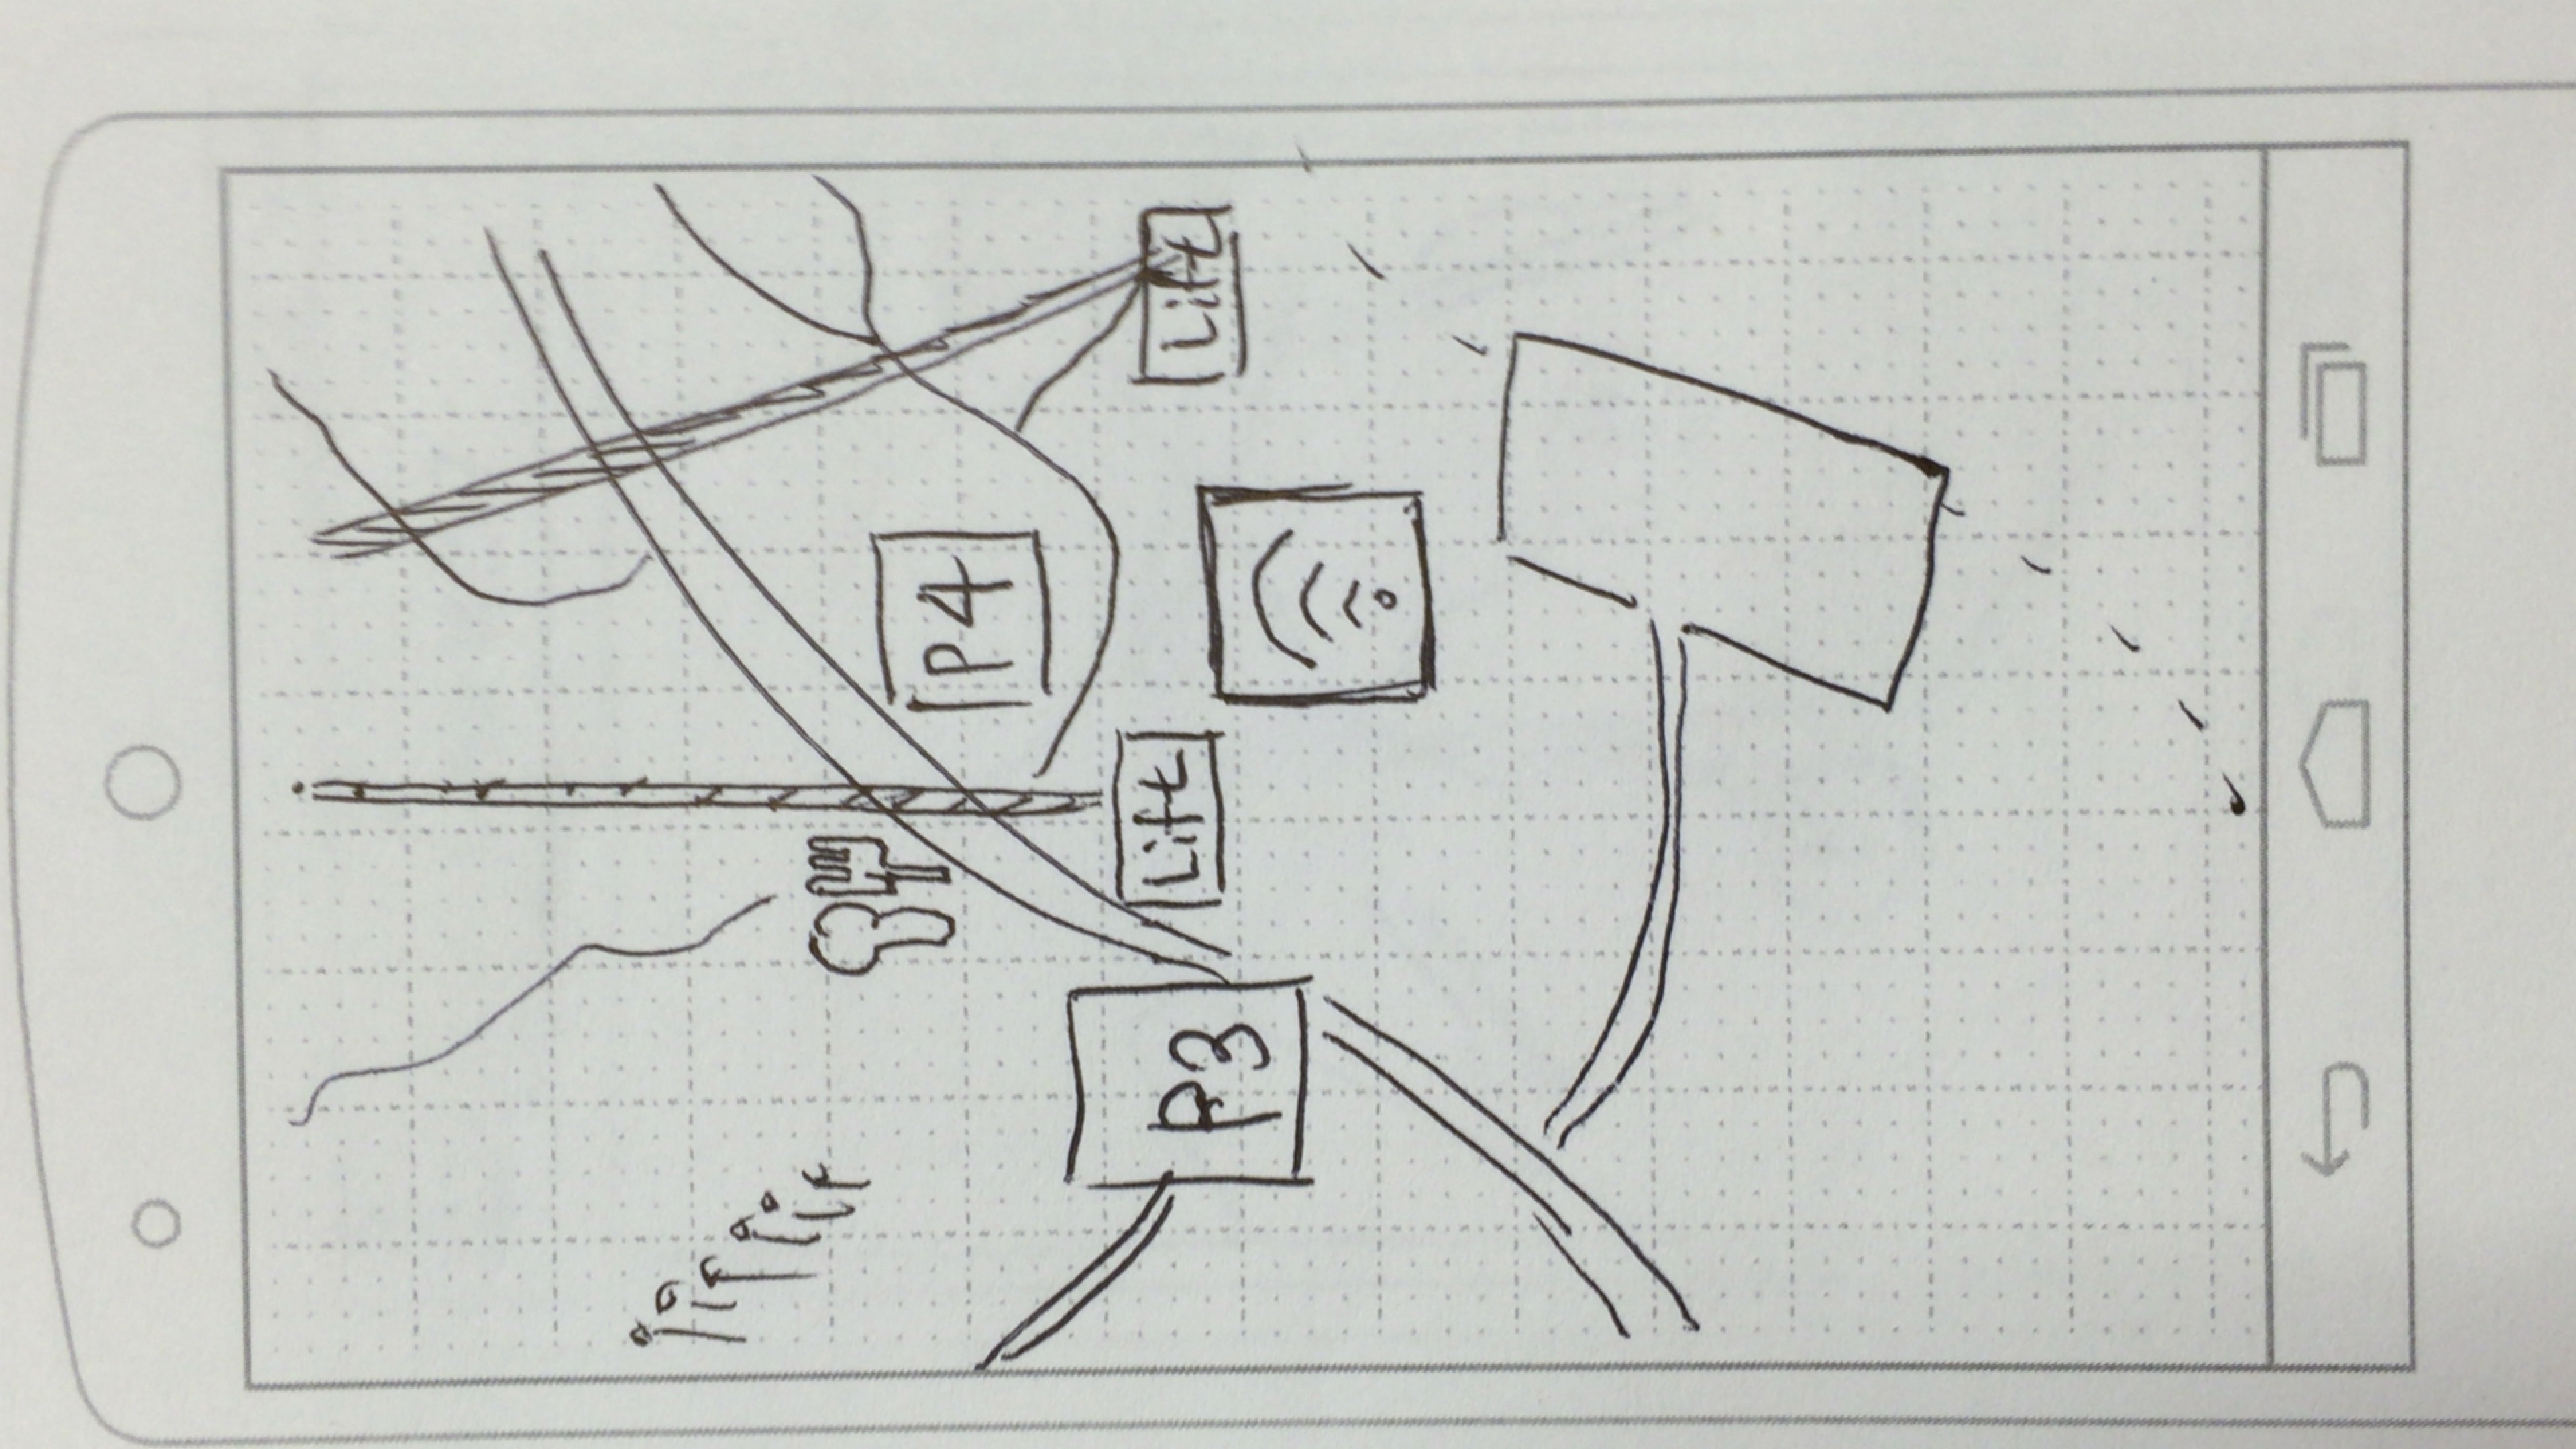 P4
P3
Lift
Lift